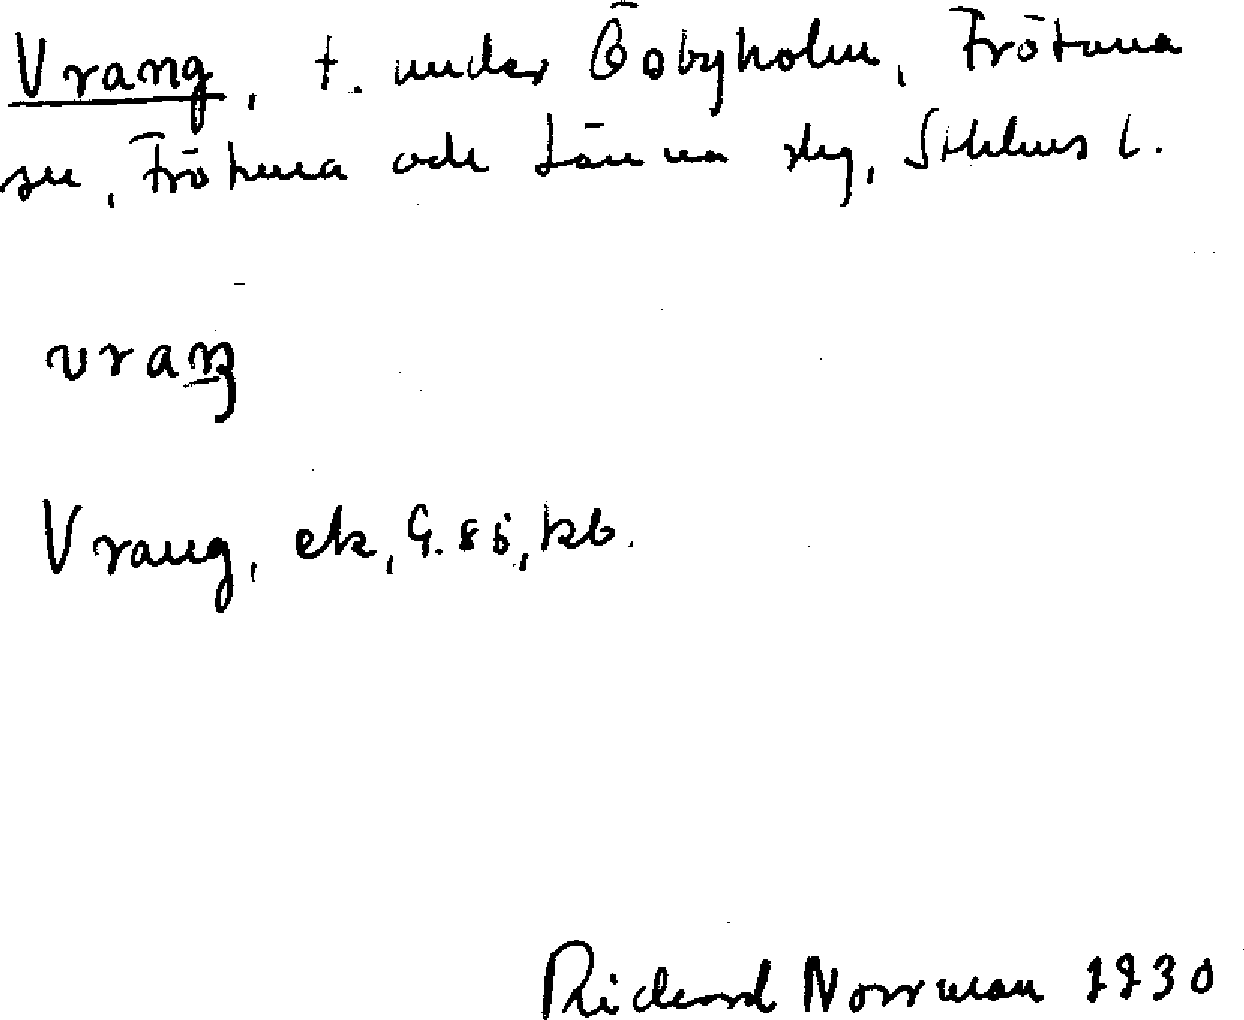 Vrang, t. under Össbyholm, Frötuna
sn, Frötuna och Länna skg, Sthlms l.
vraŋ
Vrang, ek, G. 85, kb.
Rickard Norrman 1930